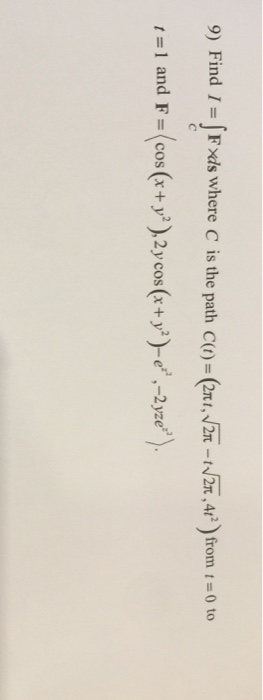 9) Find I = ∫_C F×ds where C is the path C(t) = (2πt, √2π − t√2π, 4t²) from t = 0 to
t = 1 and F = ⟨cos(x + y²), 2y cos(x + y²) − e^{z²}, −2yze^{z²}⟩.